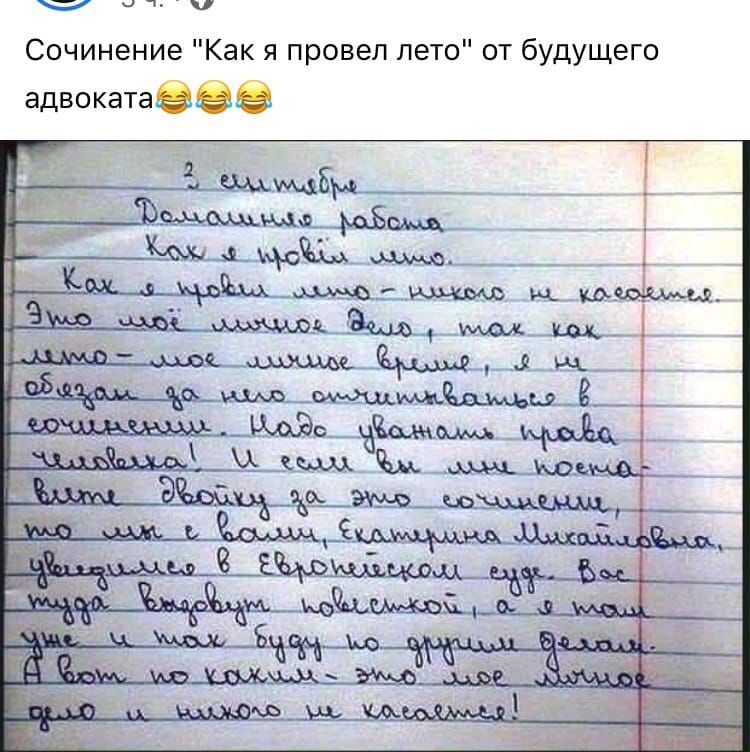 3 ч.
Сочинение "Как я провел лето" от будущего
адвоката😂😂😂
3 сентября
Домашняя работа
Как я провёл лето.
Как я провел лето – никого не касается.
Это моё личное дело, так как
лето – мое личное время, я не
обязан за него отчитываться в
сочинении. Надо уважать права
человека! И если вы мне поста-
вите двойку за это сочинение,
то мы с вами, Екатерина Михайловна,
увидимся в Европейском суде. Вас
туда вызовут повесткой, а я там
уже и так буду по другим делам.
А вот по каким – это мое личное
дело и никого не касается!